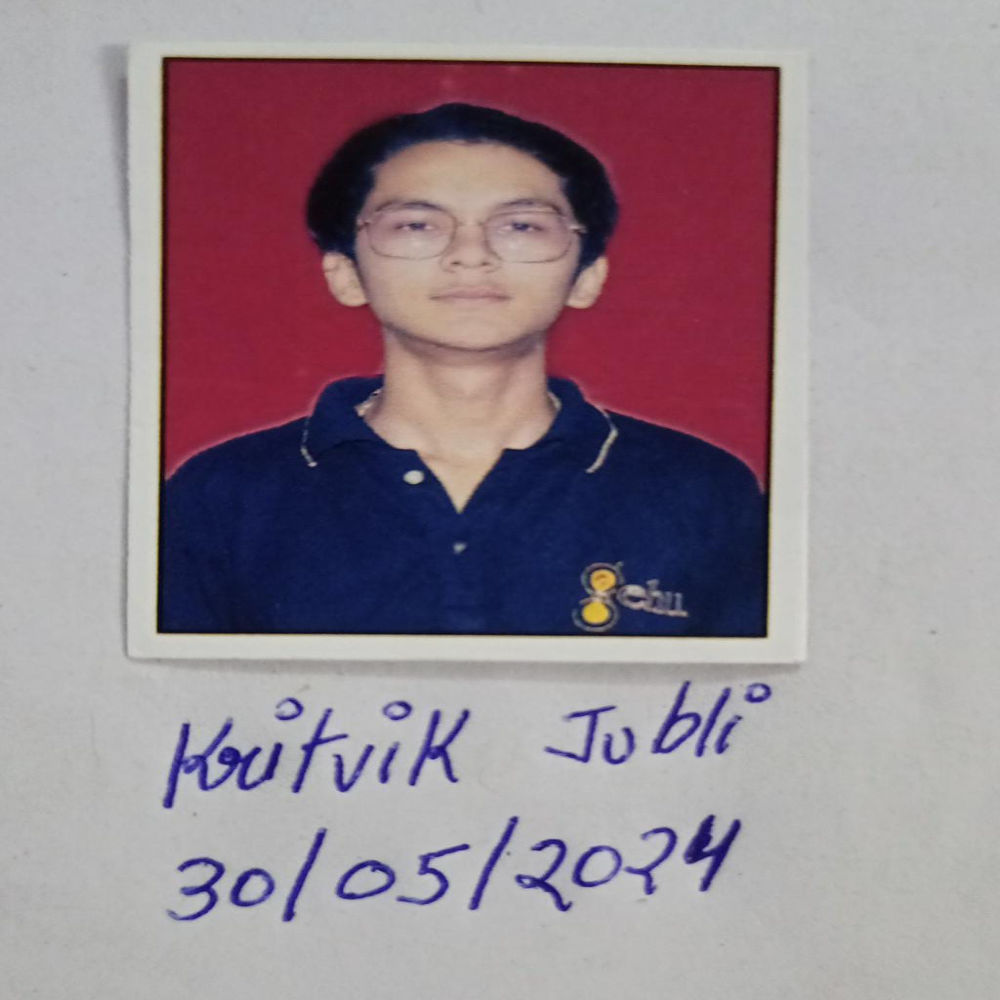 gehu
Kritvik Jubli
30/05/2024